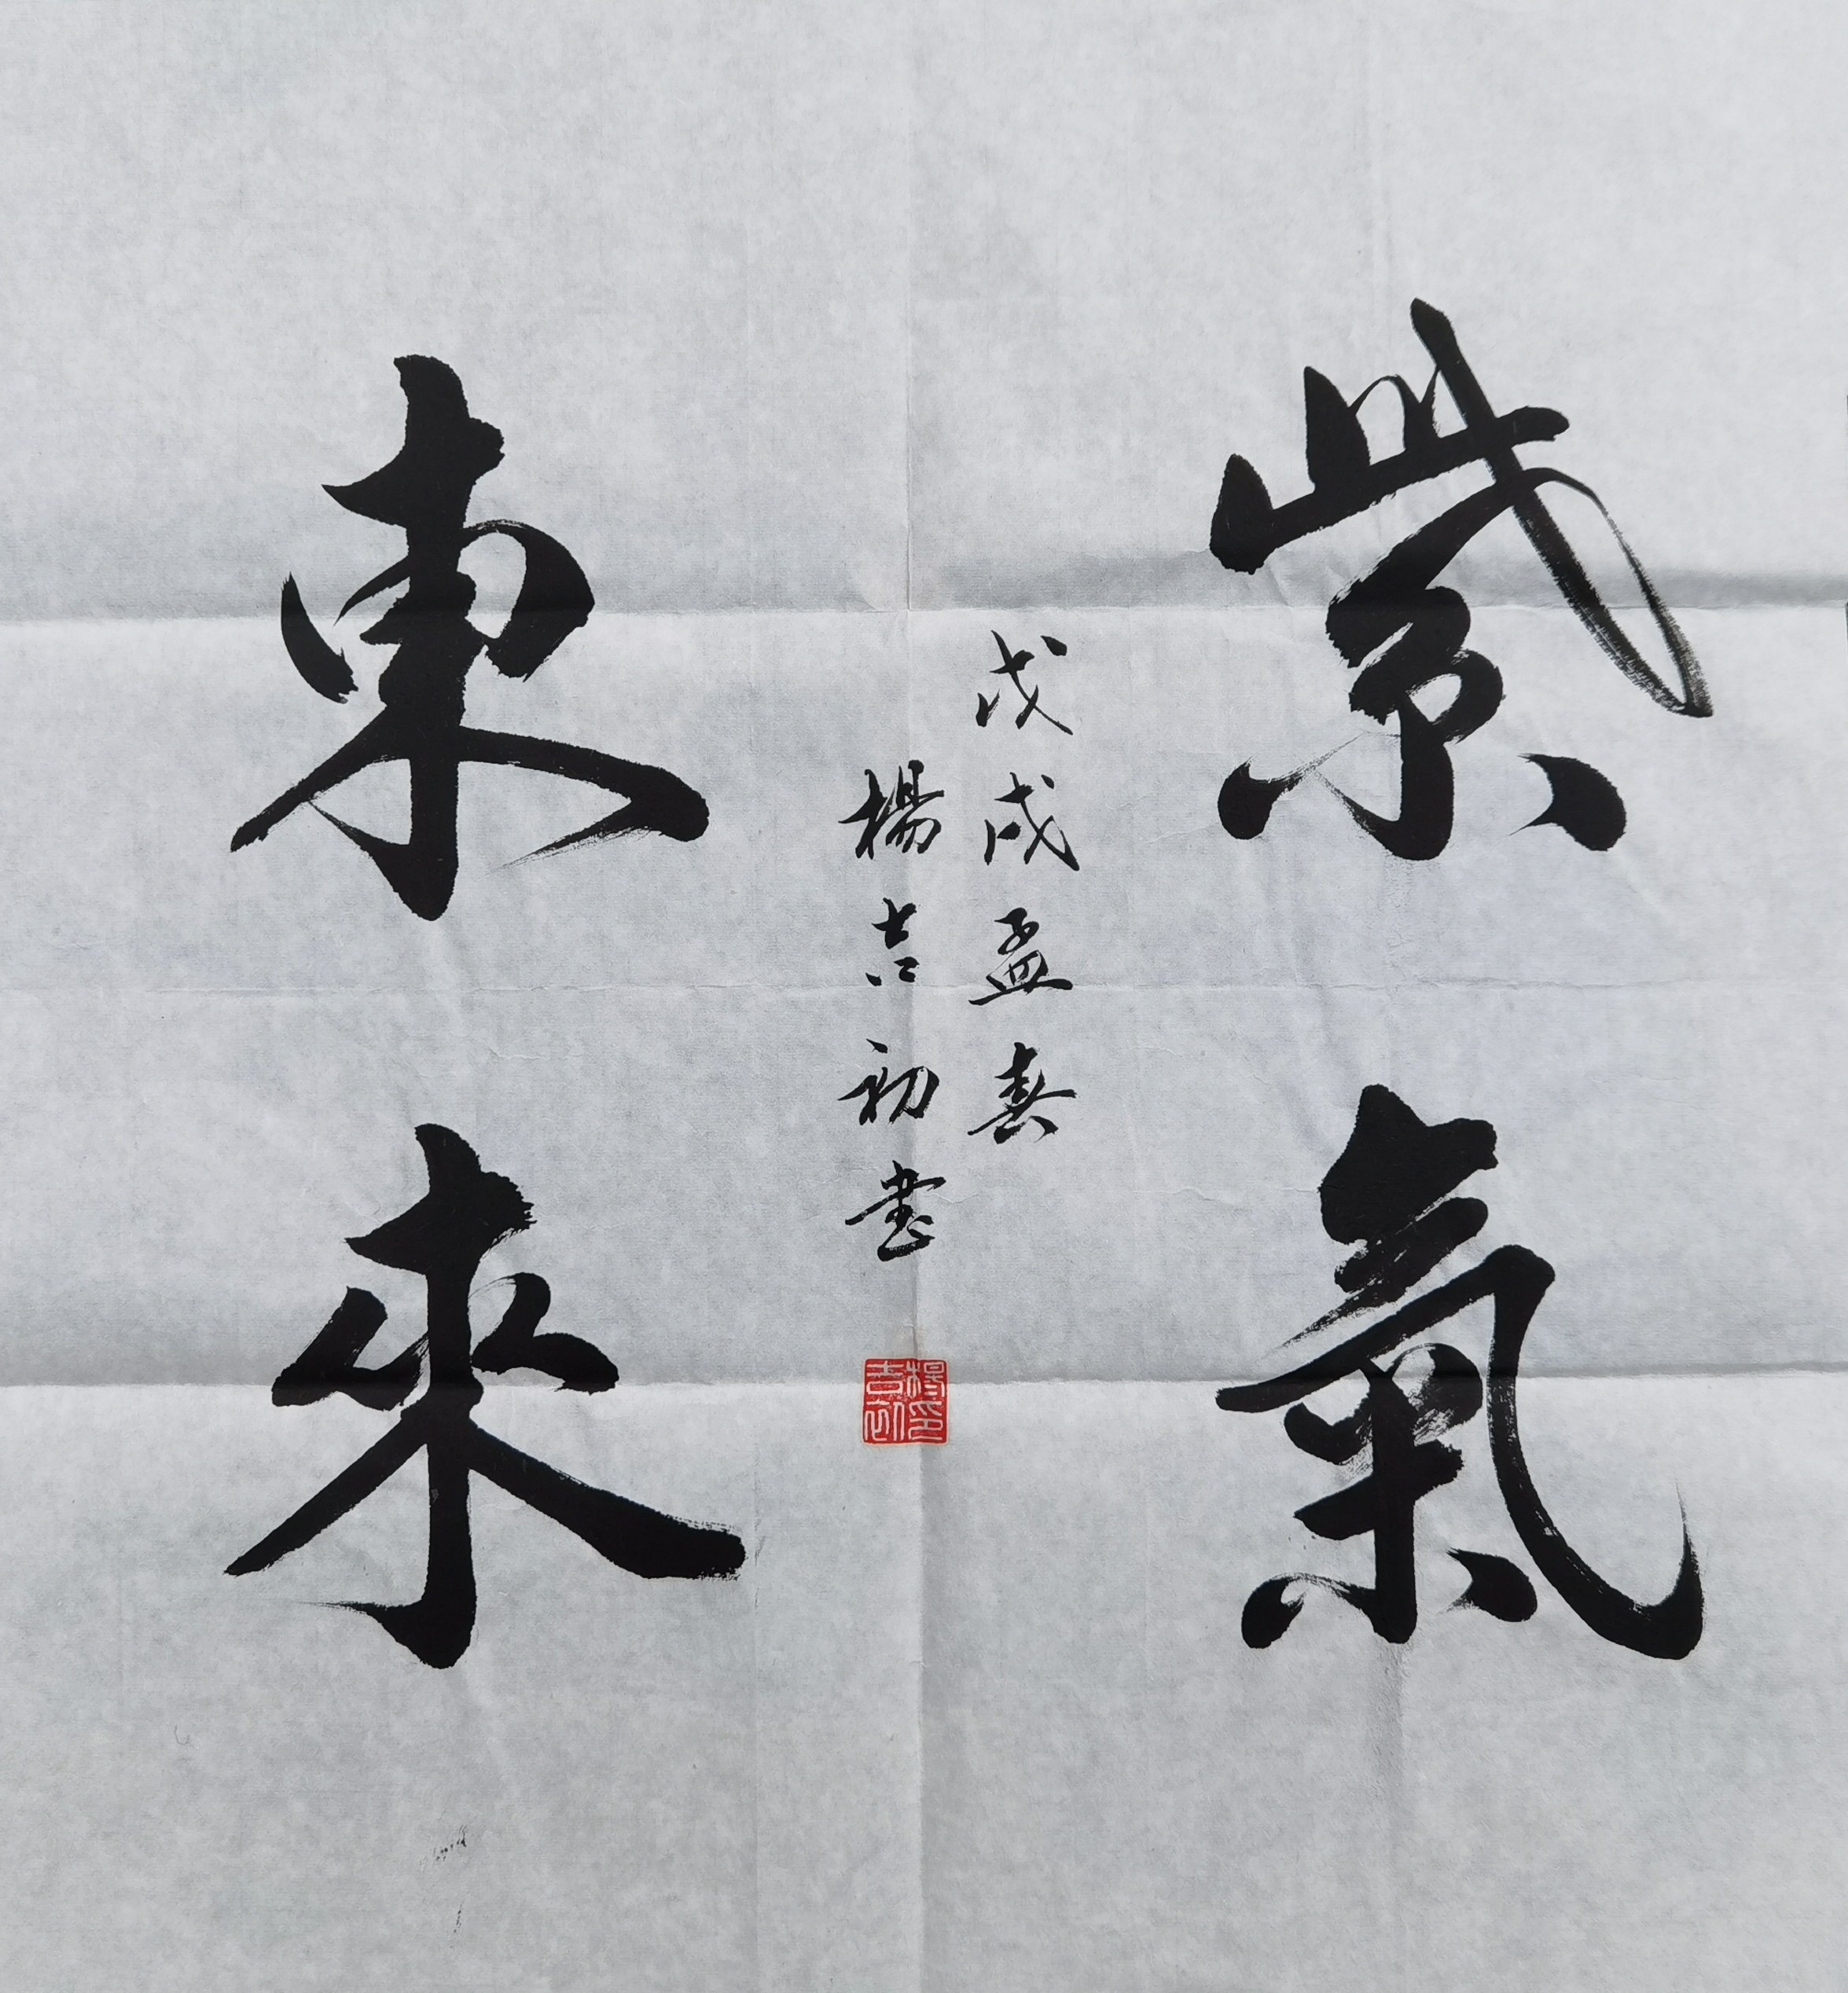 紫氣
東來
戊戌孟春
楊吉初書
楊印
吉初